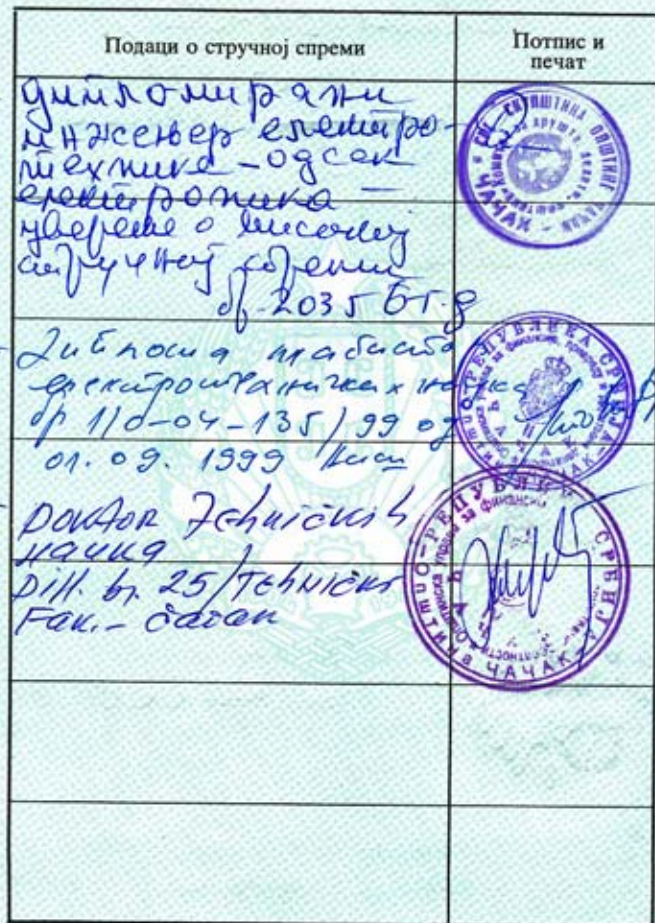 Подаци о стручној спреми
Потпис и
печат
дипломирани
инжењер електро-
технике - одсек
електроника -
уверење о високој
стручној спреми
бр. 2035
СКУПШТИНА ОПШТИНЕ ЧАЧАК
Диплома магистра
електротехничких наука
бр 110-04-135/99 од
01. 09. 1999 Ниш
РЕПУБЛИКА СРБИЈА
ЧАЧАК
DOKTOR Tehničkih
наука
Dipl. br. 25/Tehnički
Fak. - Čačak
РЕПУБЛИКА СРБИЈА
ЧАЧАК